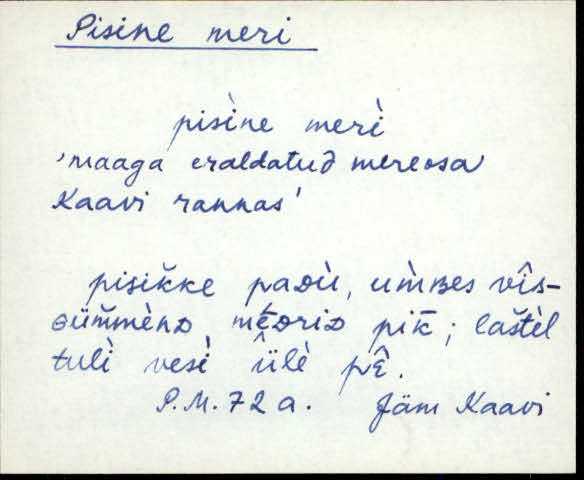 Pisine meri
pisìne merì
'maaga eraldatud mereosa
Kaavi rannas'
pisik̆ke paᴅù, um̀ʙes vî̬s-
ɢüm̆mènᴅ mèᴅriᴅ pik̄; laštèl
tulì vesì ǖ̂lè pê̬.
P.M. 72 a. Jäm Kaavi